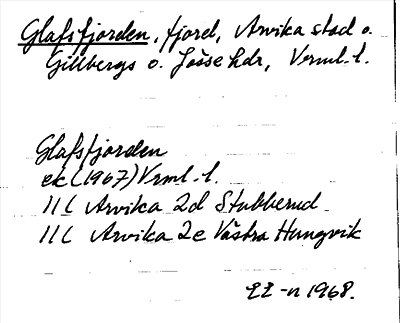 Glafsfjorden, fjord, Arvika stad o.
Gillbergs o. Jösse hdr, Vrml. l.
Glafsfjorden
ek (1967) Vrml. l.
11C Arvika 2d Stubberud
11C Arvika 2e Västra Hungvik
1968.